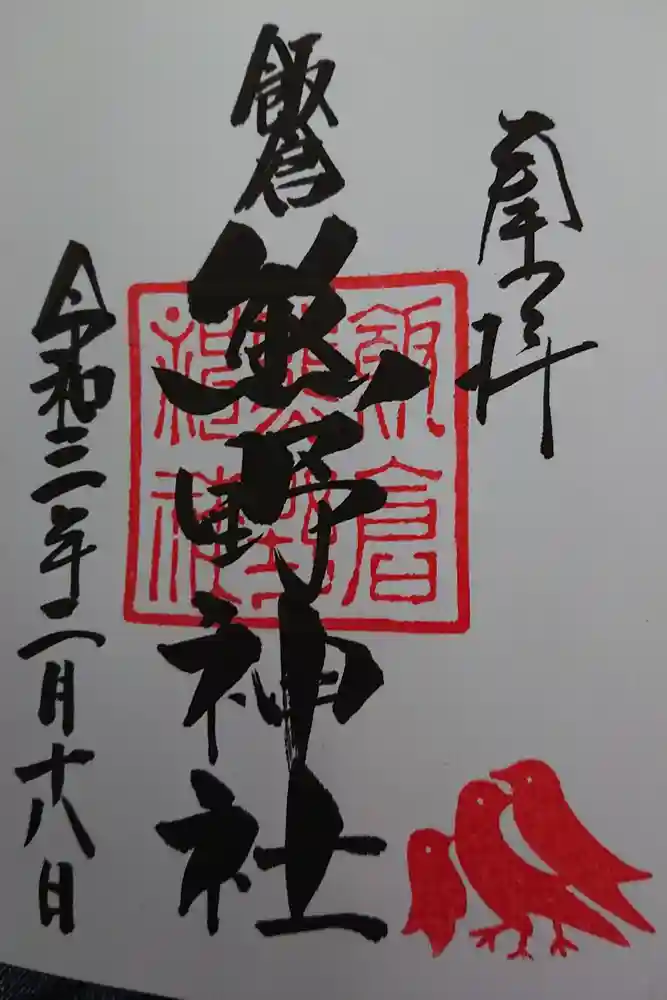 奉拝
飯倉
熊野神社
飯倉
熊野
神社
令和三年二月十八日